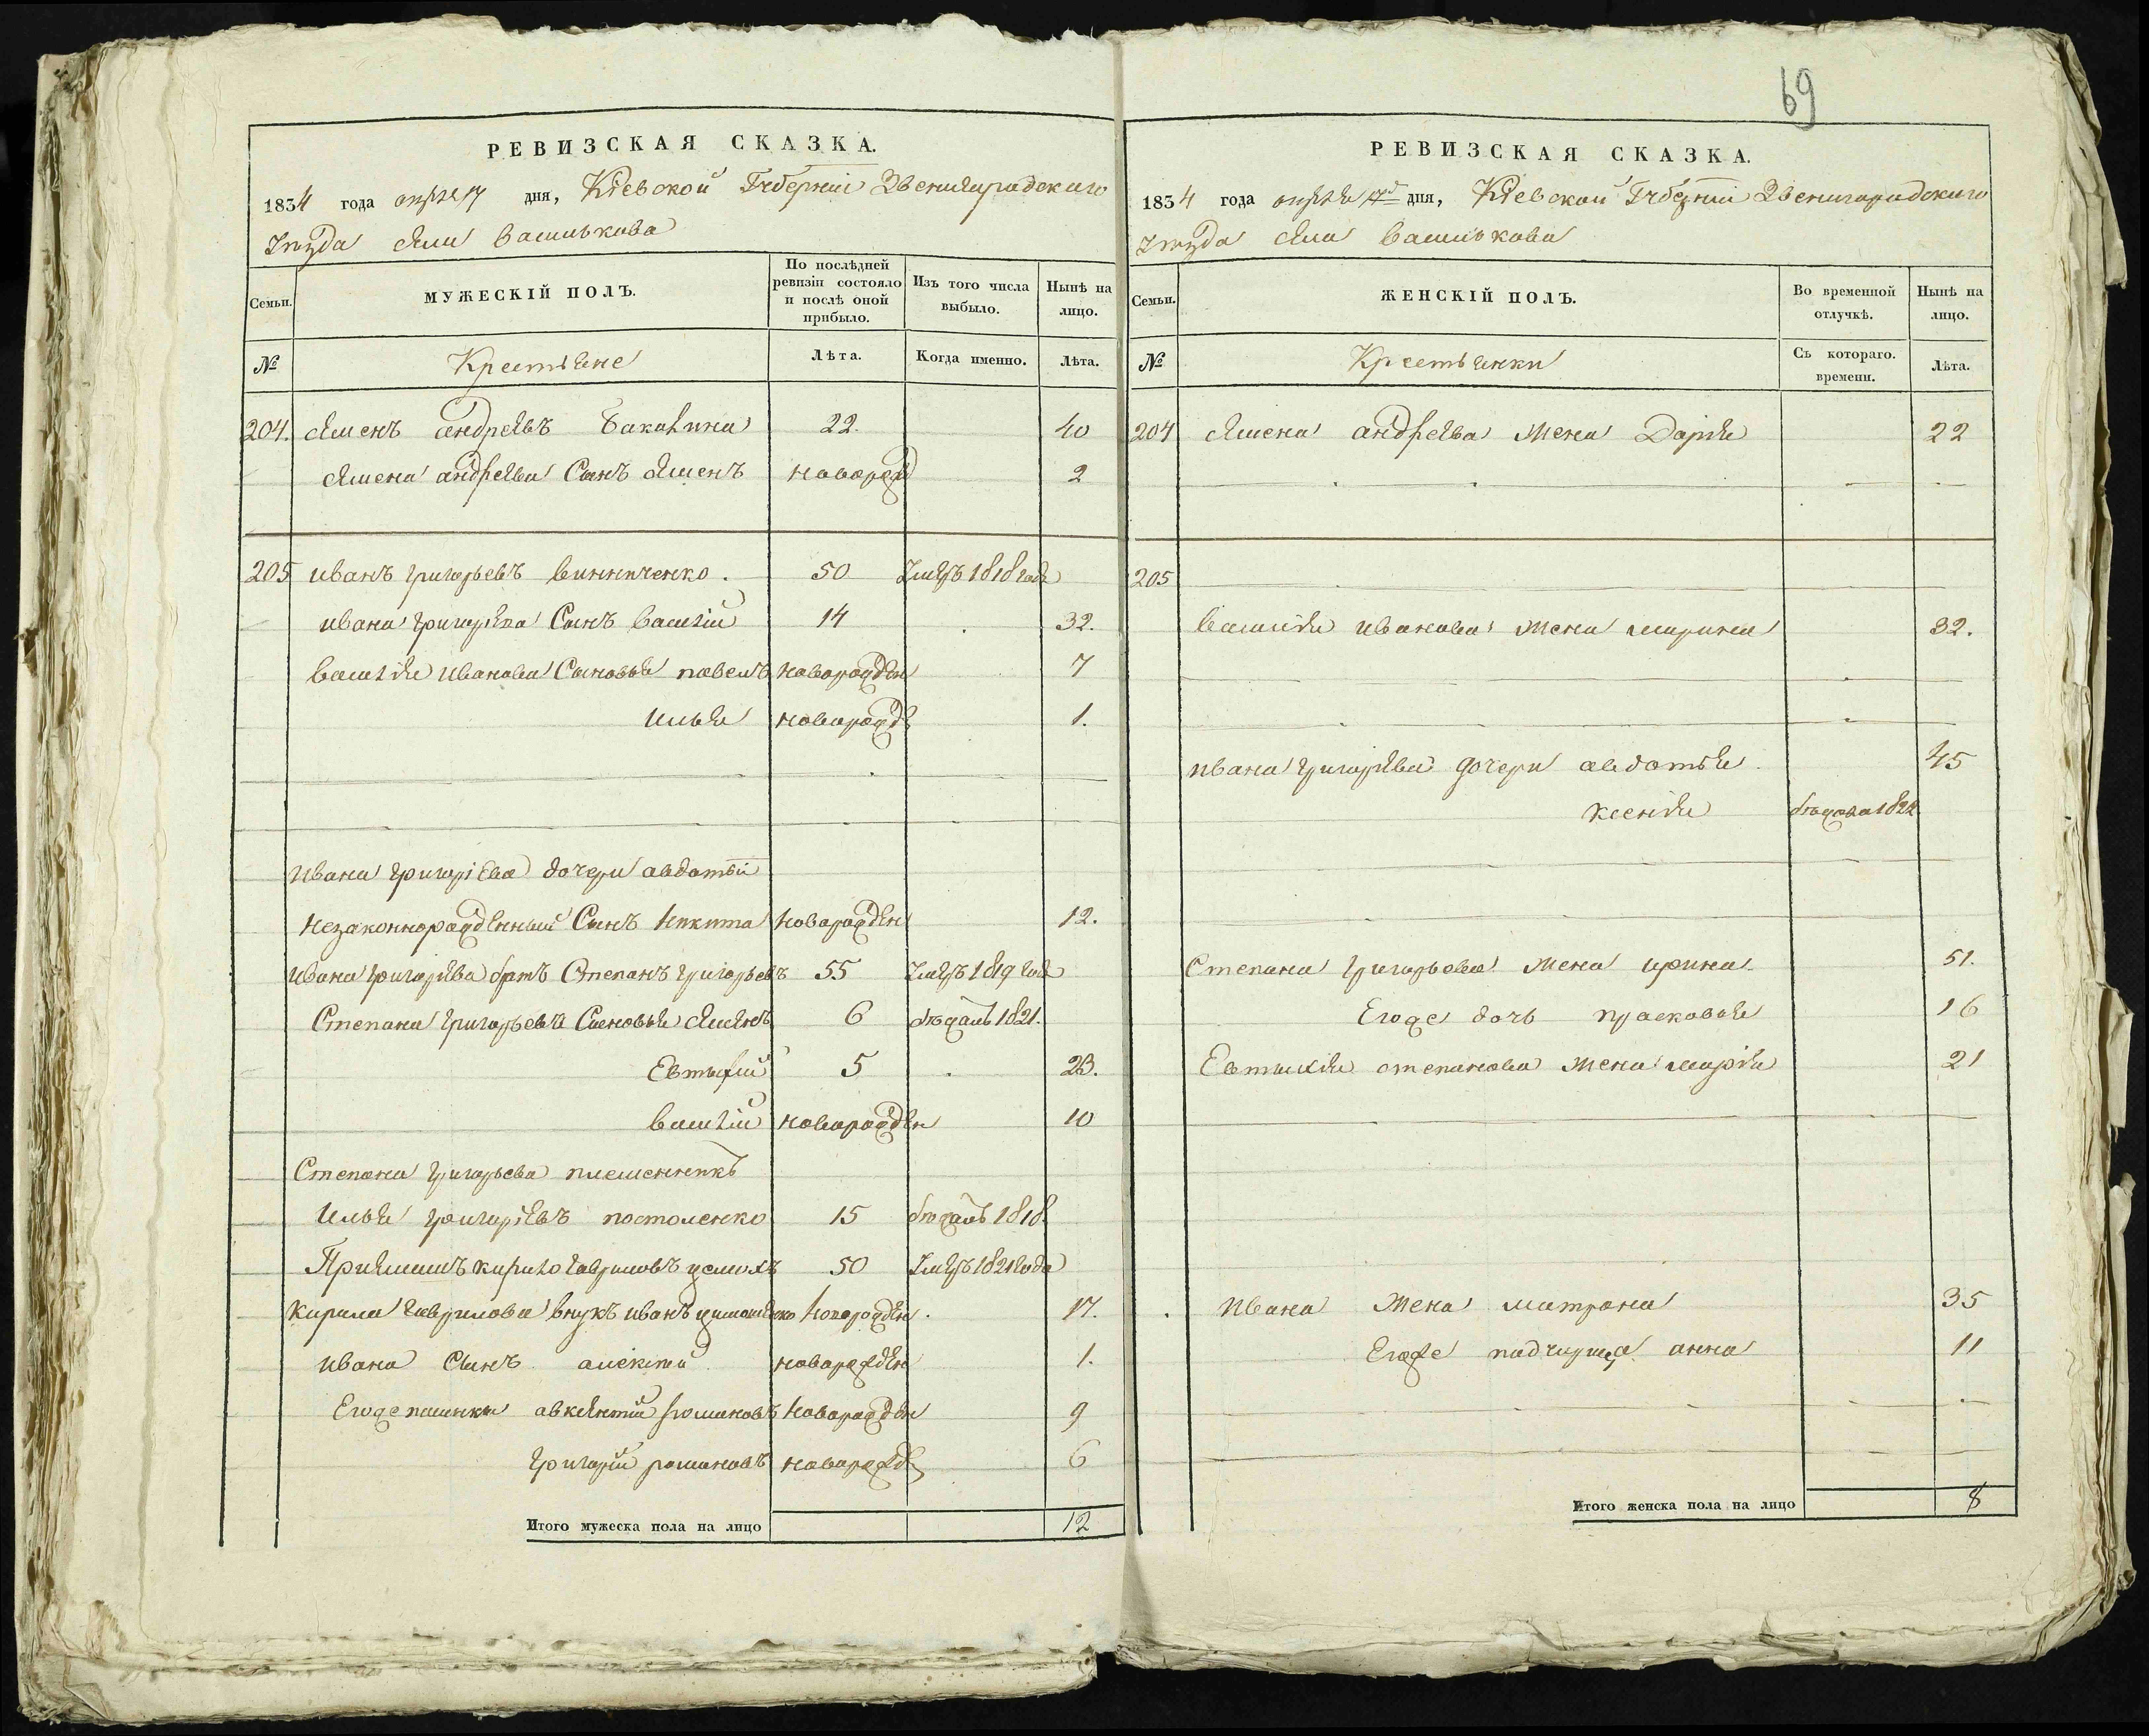 69
РЕВИЗСКАЯ СКАЗКА.
1834 года апреля 17 дня, Кіевской Губерніи Звенигородского
Уезда села Василькова
Семьи. МУЖЕСКІЙ ПОЛЪ. По послѣдней ревизіи состояло и послѣ оной прибыло. Изъ того числа выбыло. Нынѣ на лицо.
№ Крестьяне Лѣта. Когда именно. Лѣта.
204. Семенъ андреевъ 22. 40
Семена андреева Сынъ Семенъ новорожд 2
205 иванъ григорьевъ винниченко. 50 Умеръ 1818 года
ивана григориева Сынъ василий 14 32.
василия иванова Сыновья павелъ новорожден 7
илья новорожде 1.
ивана григориева дочери авдотьи
незаконнорожденный Сынъ никита новорожден 12.
ивана григориева братъ Степанъ григорьевъ 55 Умеръ 1819 года
Степана григорьева Сыновья Семенъ 6 бежалъ 1821.
Евтихий 5 23.
василий новорожден 10
Степана григорьева племенникъ
илья григориевъ постоленко 15 бежалъ 1818
Приемышъ кирило гавриловъ 50 Умеръ 1821 года
кирила гаврилова внукъ иванъ новорожден 17.
ивана Сынъ алексей новорожден 1.
Егоже пасынки авксентий романовъ новорожден 9
григорий романовъ новорожде 6
Итого мужеска пола на лицо 12
РЕВИЗСКАЯ СКАЗКА.
1834 года апреля 17 дня, Кіевской Губерніи Звенигородского
Уезда села Василькова
Семьи. ЖЕНСКІЙ ПОЛЪ. Во временной отлучкѣ. Нынѣ на лицо.
№ Крестьянки Съ котораго. времени. Лѣта.
204 Семена андреева жена Дария 22
205
василия иванова жена марина 32.
ивана григориева дочери авдотья 45
ксения бежала 1822
Степана григорьева жена ирина 51.
Егоже дочь прасковья 16
Евтихия степанова жена мария 21
ивана жена матрона 35
Егоже падчирица анна 11
Итого женска пола на лицо 8